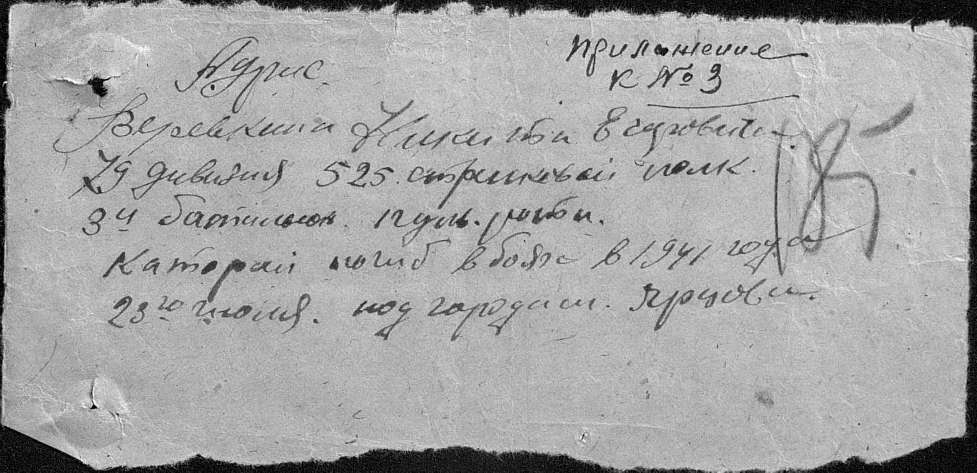 приложение
к №3
Адрис.
Веревкина Никиты Егоровича.
79 дивизия 525 стрелковай полк.
3й батальон. пул. роты.
Каторай погиб в боях в 1941 года
23го июля. под городам. Ярцова.